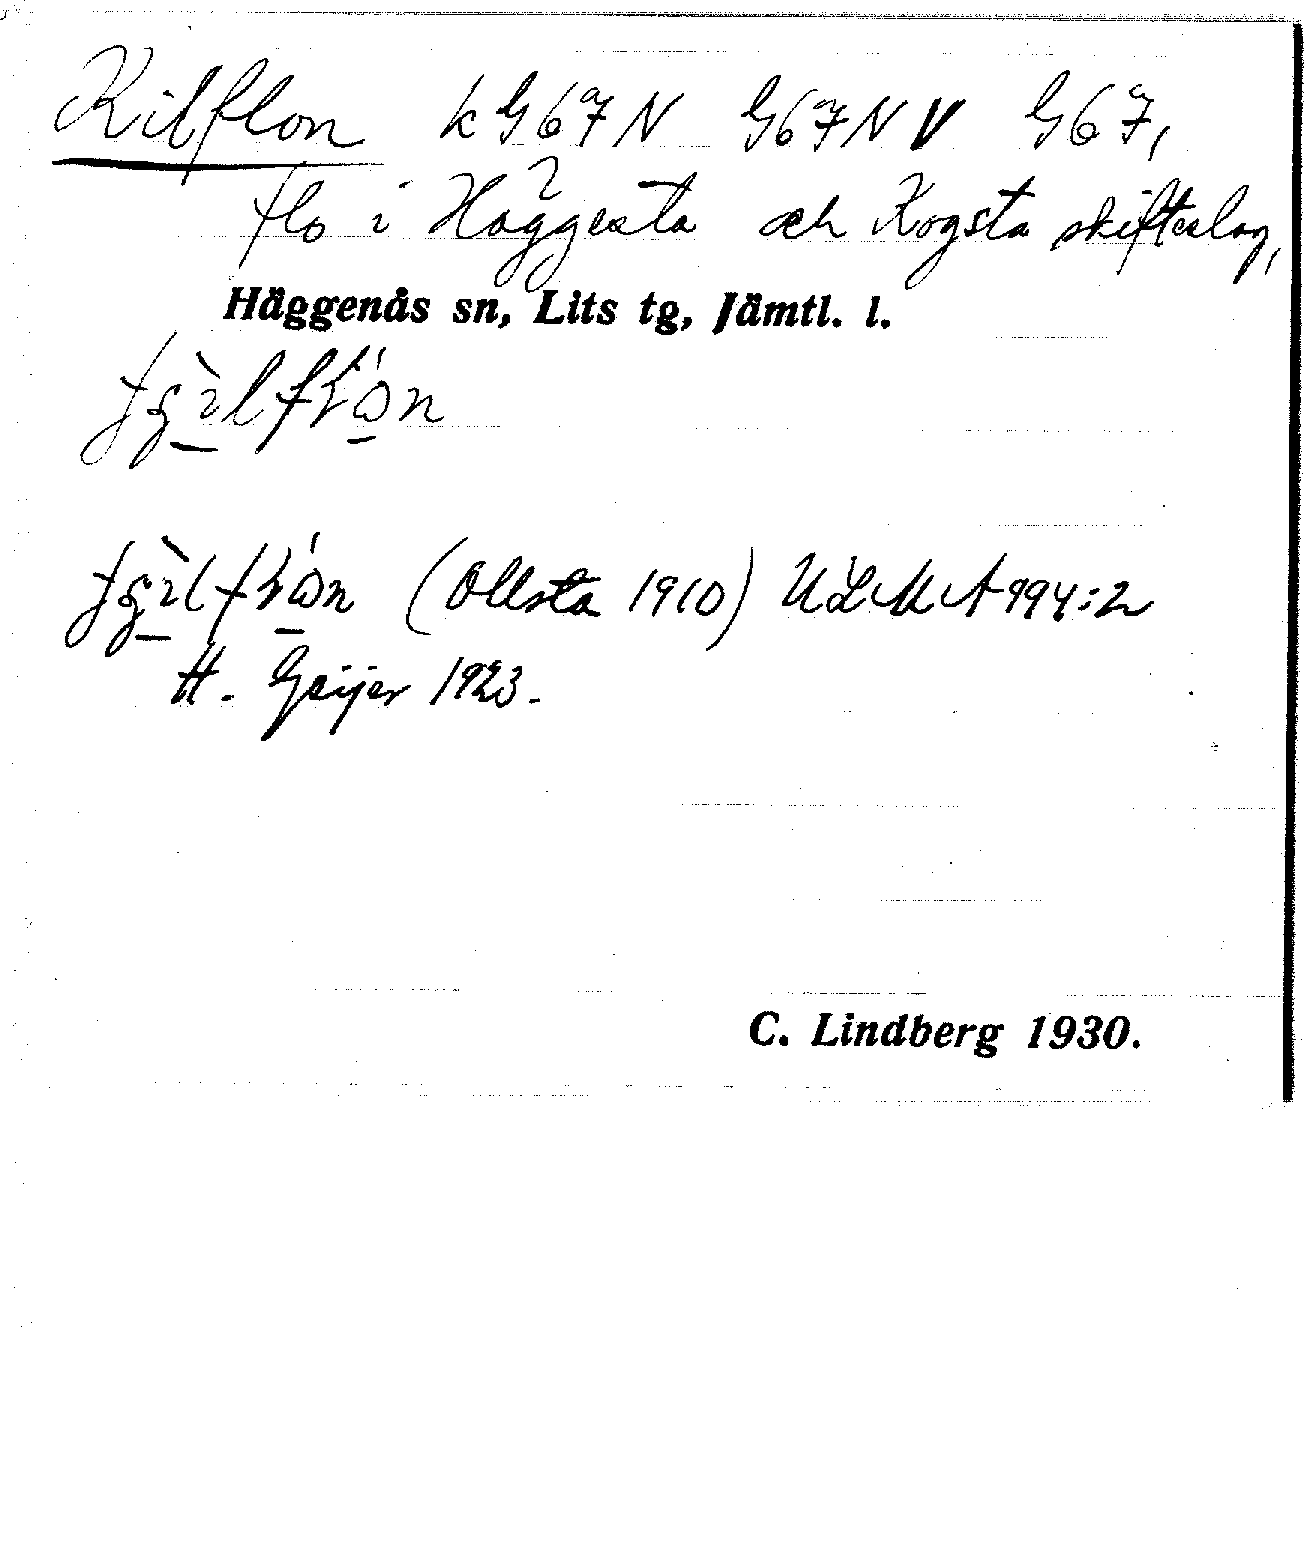 Kilflon k G67N G67NV G67,
flo i Häggesta och Kogsta skifteslag,
Häggenås sn, Lits tg, Jämtl. l.
(Ollsta 1910) ULMA 994:2
H. Geijer 1923.
C. Lindberg 1930.